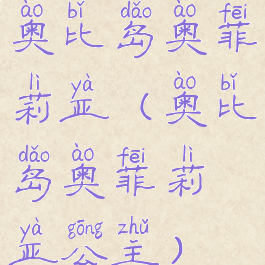 ào bǐ dǎo ào fēi
奥比岛奥菲
lì yà ào bǐ
莉亚（奥比
dǎo ào fēi lì
岛奥菲莉
yà gōng zhǔ
亚公主）